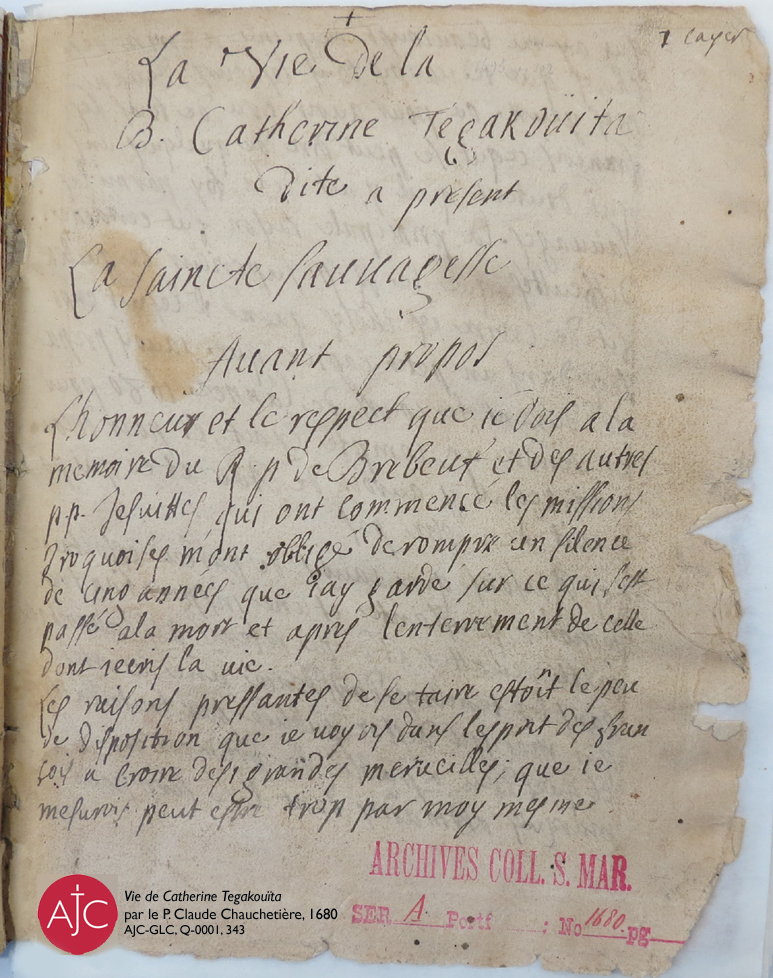 1 cayer
La Vie de la
B. Catherine Tegakoüita
Dite a present
La Saincte Sauuagesse
Auant propos
Lhonneur et le respect que ie dois a la
memoire du R. p de Brebeuf et des autres
pp. Jesuittes qui ont commencé les missions
Iroquoises mont obligé de rompre un silence
de cinq années que iay gardé sur ce qui sest
passé a la mort et apres lenterrement de celle
dont iecris la uie.
Les raisons pressantes de se taire estoît le peu
de disposition que ie uoyois dans lesprit des fran
cois a croire des grandes merueilles; que ie
mesurois peut estre trop par moy mesme
ARCHIVES COLL. S. MAR.
SER A Portf : No 1680 pg
AJC
Vie de Catherine Tegakouïta
par le P. Claude Chauchetière, 1680
AJC-GLC, Q-0001, 343